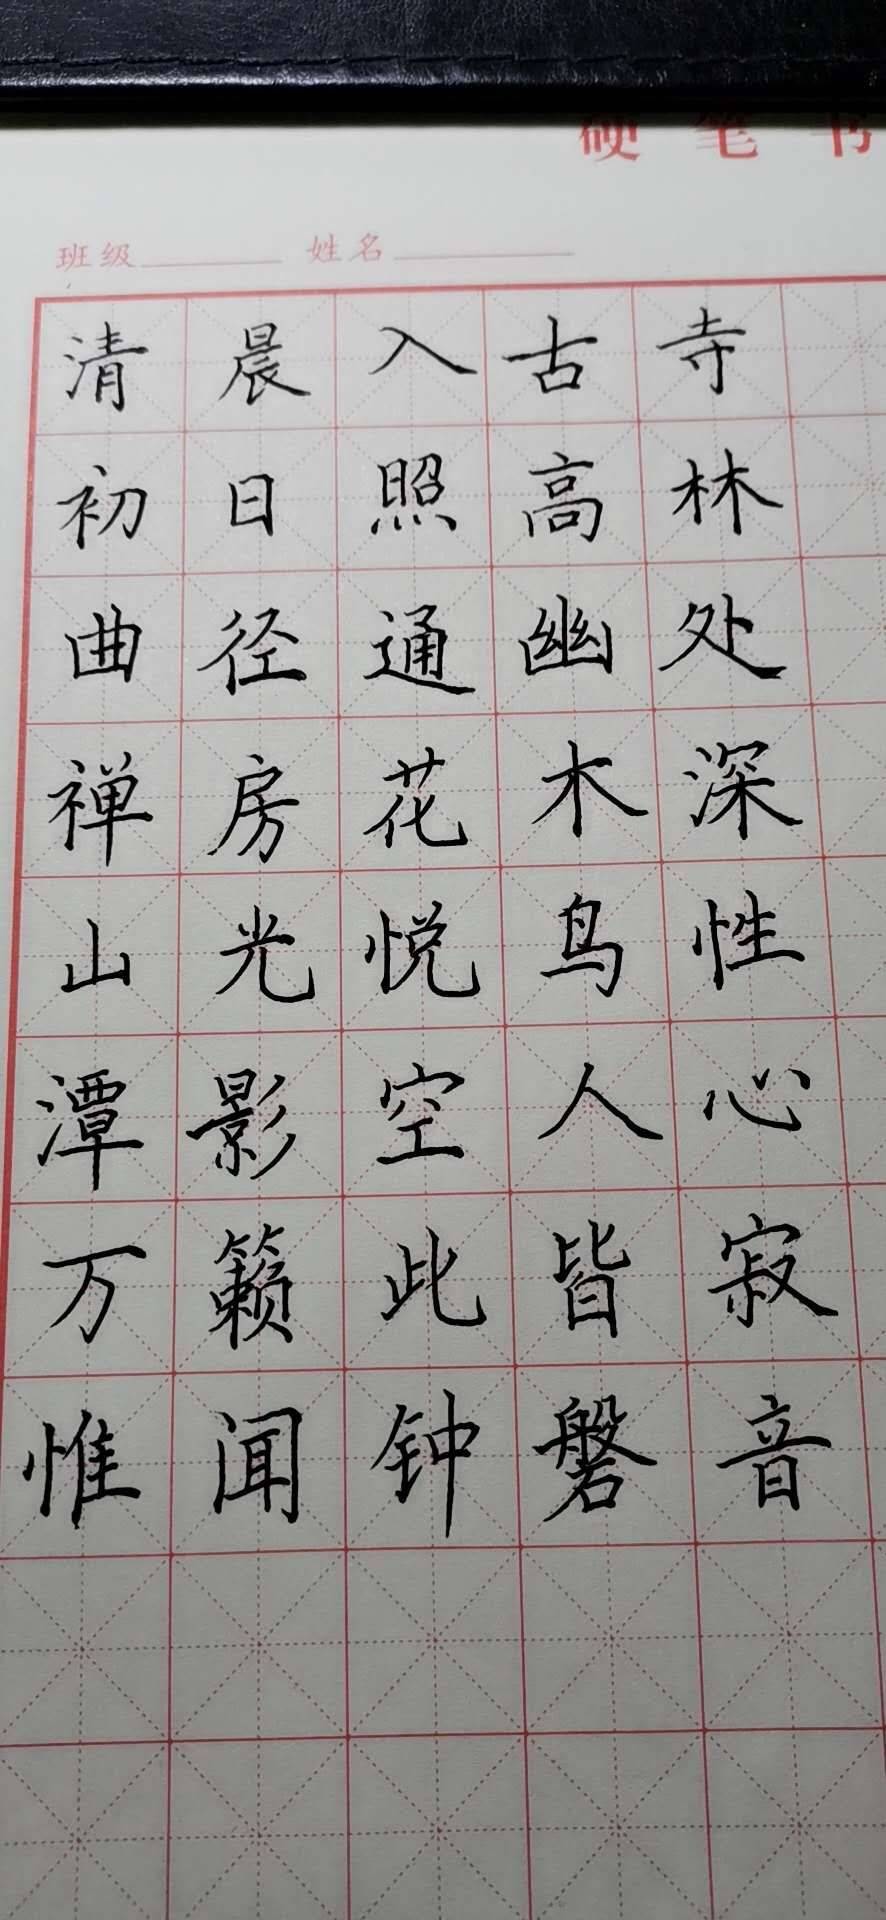 硬笔书
班级 姓名
清晨入古寺
初日照高林
曲径通幽处
禅房花木深
山光悦鸟性
潭影空人心
万籁此皆寂
惟闻钟磐音